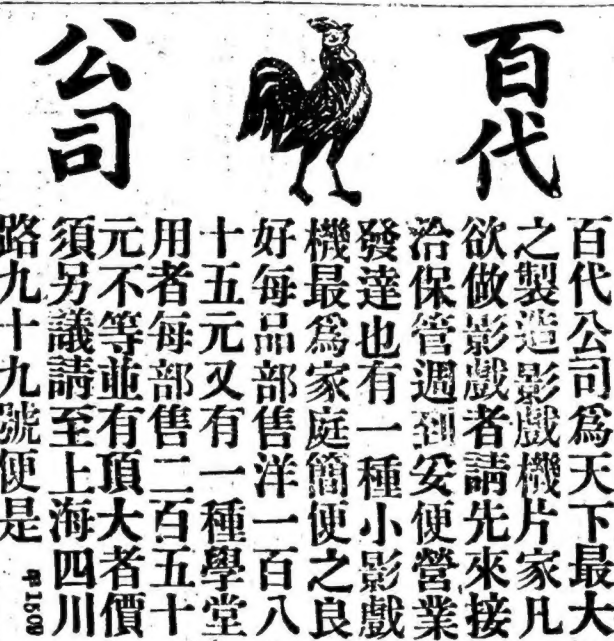 百代
公司
百代公司爲天下最大
之製造影戲機片家凡
欲做影戲者請先來接
洽保管週到安便營業
發達也有一種小影戲
機最爲家庭簡便之良
好每品部售洋一百八
十五元又有一種學堂
用者每部售二百五十
元不等並有頂大者價
須另議請至上海四川
路九十九號便是
甲1509